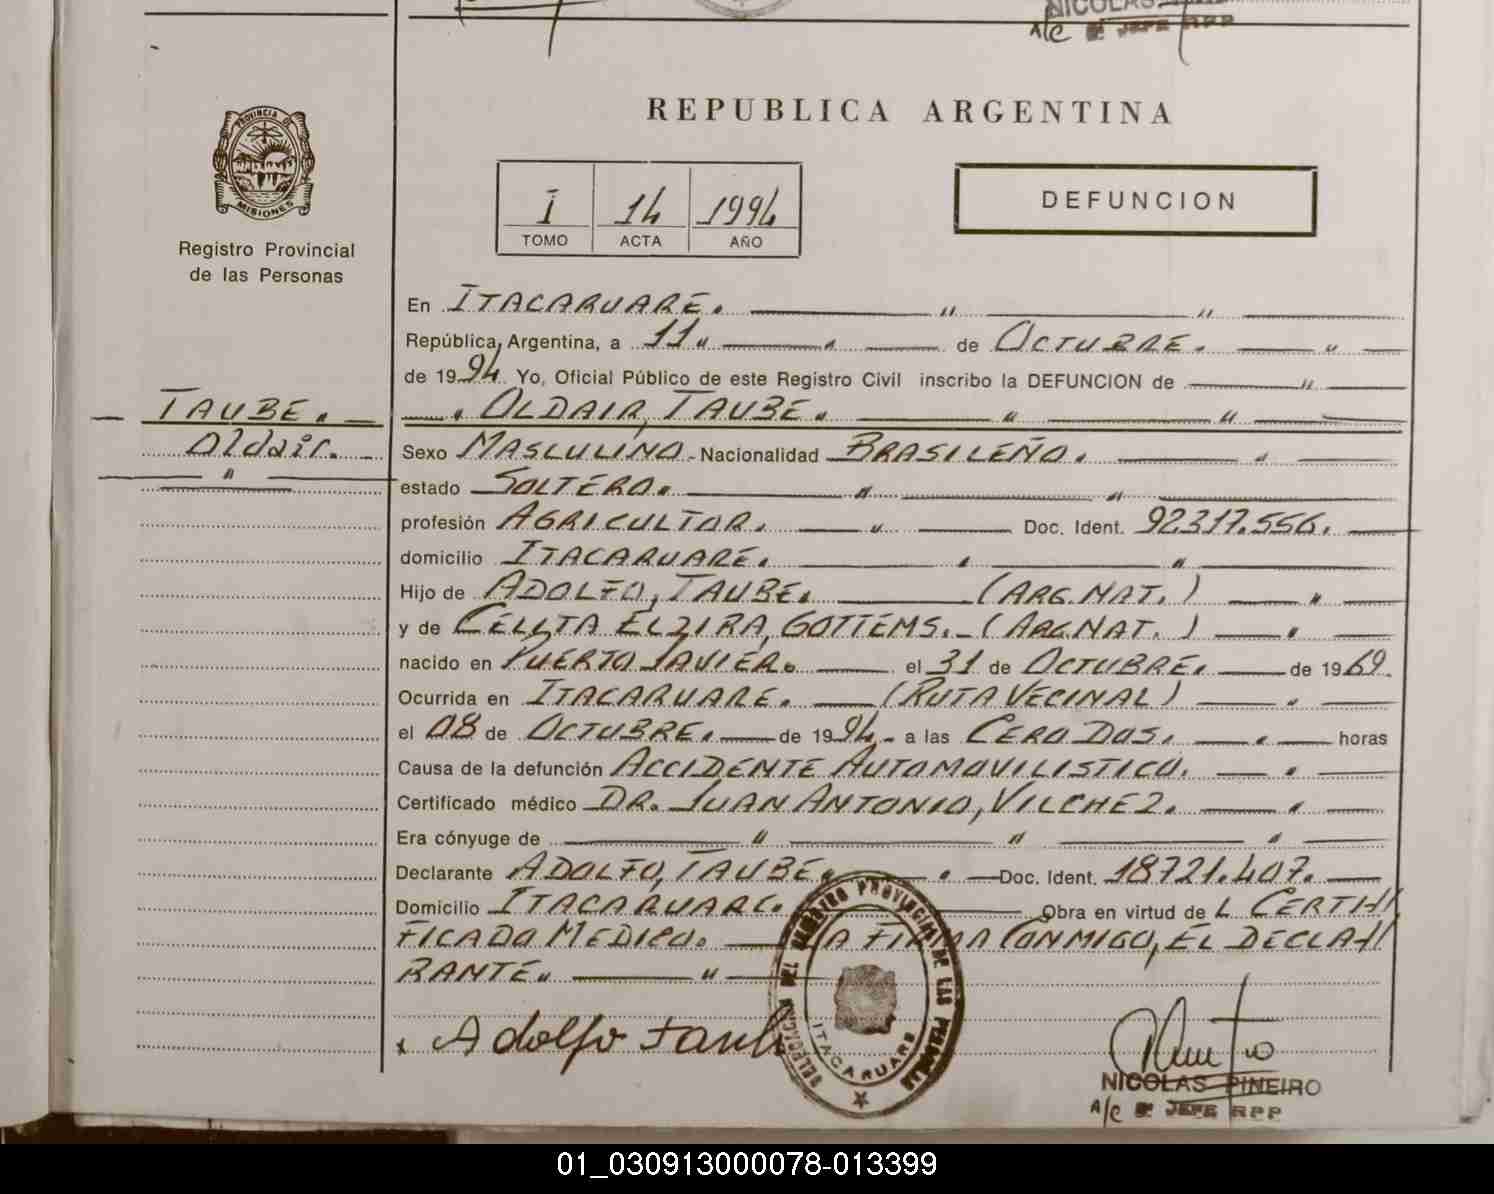 NICOLAS
A/C JEFE RPP
PROVINCIA DE
MISIONES
Registro Provincial
de las Personas
REPUBLICA ARGENTINA
I 14 1994
TOMO ACTA AÑO
DEFUNCION
En ITACARUARE. " "
República Argentina, a 11 " " de OCTUBRE. "
de 1994 Yo, Oficial Público de este Registro Civil inscribo la DEFUNCION de "
TAUBE.
Aldair.
"
. OLDAIR, TAUBE. " "
Sexo MASCULINO.- Nacionalidad BRASILEÑO. "
estado SOLTERO. " "
profesión AGRICULTOR. " Doc. Ident. 92317.556.
domicilio ITACARUARE. " "
Hijo de ADOLFO, TAUBE. (ARG. NAT.) "
y de CELLTA ELZIRA, GOTTEMS.- (ARG. NAT.) "
nacido en PUERTO JAVIER. el 31 de OCTUBRE. de 1969.
Ocurrida en ITACARUARE. (RUTA VECINAL) "
el 08 de OCTUBRE. de 1994.- a las CERO DOS. " horas
Causa de la defunción ACCIDENTE AUTOMOVILISTICO. "
Certificado médico DR. JUAN ANTONIO, VILCHEZ. "
Era cónyuge de " " "
Declarante ADOLFO, TAUBE. " Doc. Ident. 18721.407.
Domicilio ITACARUARE. Obra en virtud de L CERTI//
FICADO MEDICO. LA FIRMA CONMIGO, EL DECLA//
RANTE. "
x Adolfo Taube
DELEGACION DEL REGISTRO PROVINCIAL DE LAS PERSONAS
ITACARUARE
NICOLAS PINEIRO
A/C JEFE RPP
01_030913000078-013399